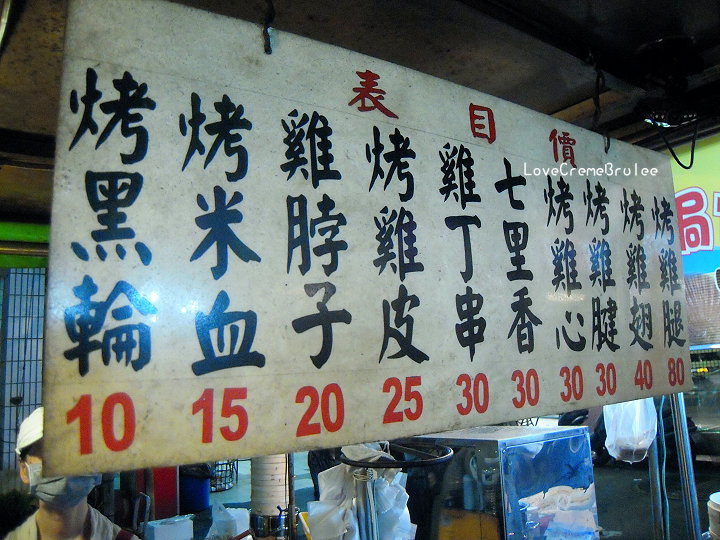 價目表
烤雞腿 80
烤雞翅 40
烤雞腱 30
烤雞心 30
七里香 30
雞丁串 30
烤雞皮 25
雞脖子 20
烤米血 15
烤黑輪 10
LoveCremeBrulee
鍋